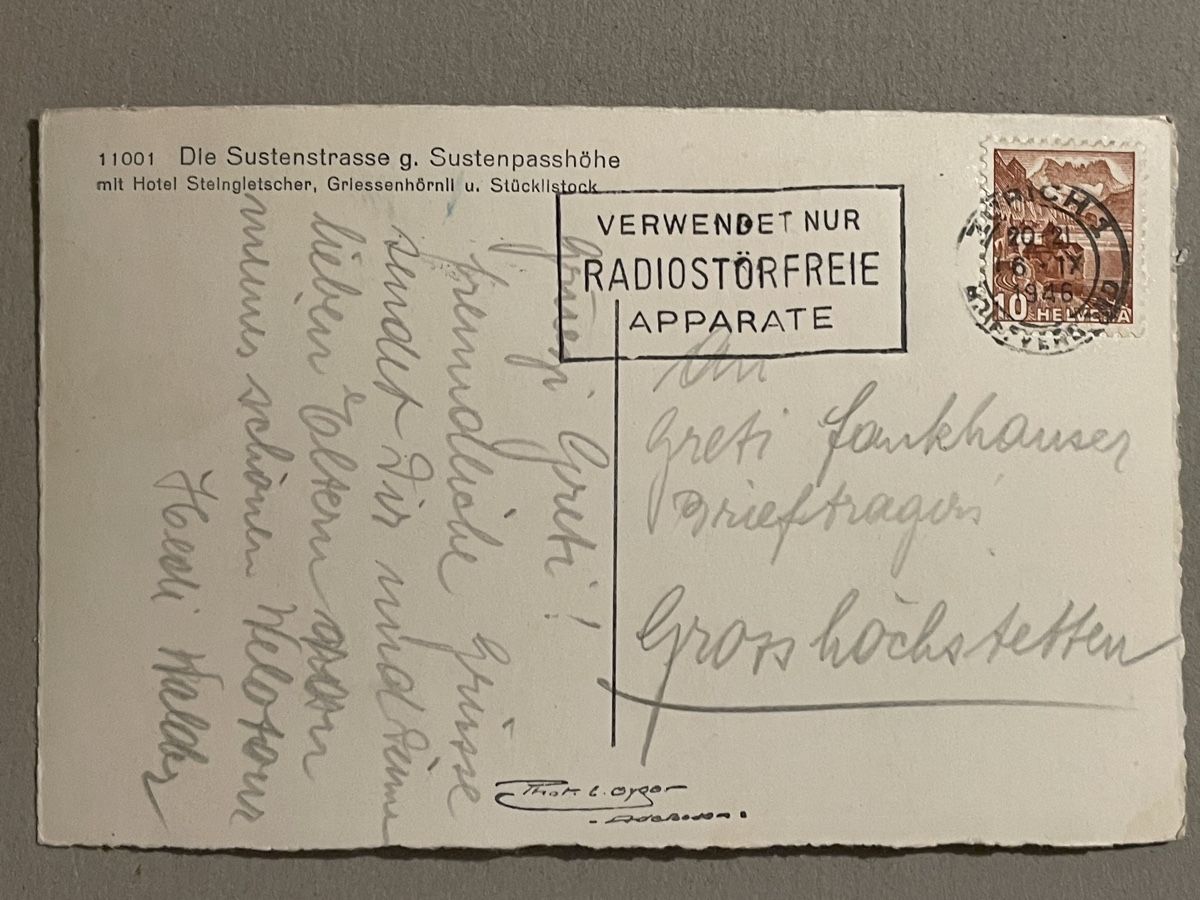 11001 Die Sustenstrasse g. Sustenpasshöhe
mit Hotel Steingletscher, Griessenhörnli u. Stücklistock
VERWENDET NUR
RADIOSTÖRFREIE
APPARATE
ZÜRICH 1
20-21
6 IX
1946
BRIEFVERSAND
10 HELVETIA
Grüezi Greti!
freundliche Grüsse
sendet Dir und Deinen
lieben Eltern von
meiner schönen Velotour
Hedi Walder
An
Greti Fankhauser
Briefträgers
Grosshöchstetten
Phot. E. Gyger
Adelboden